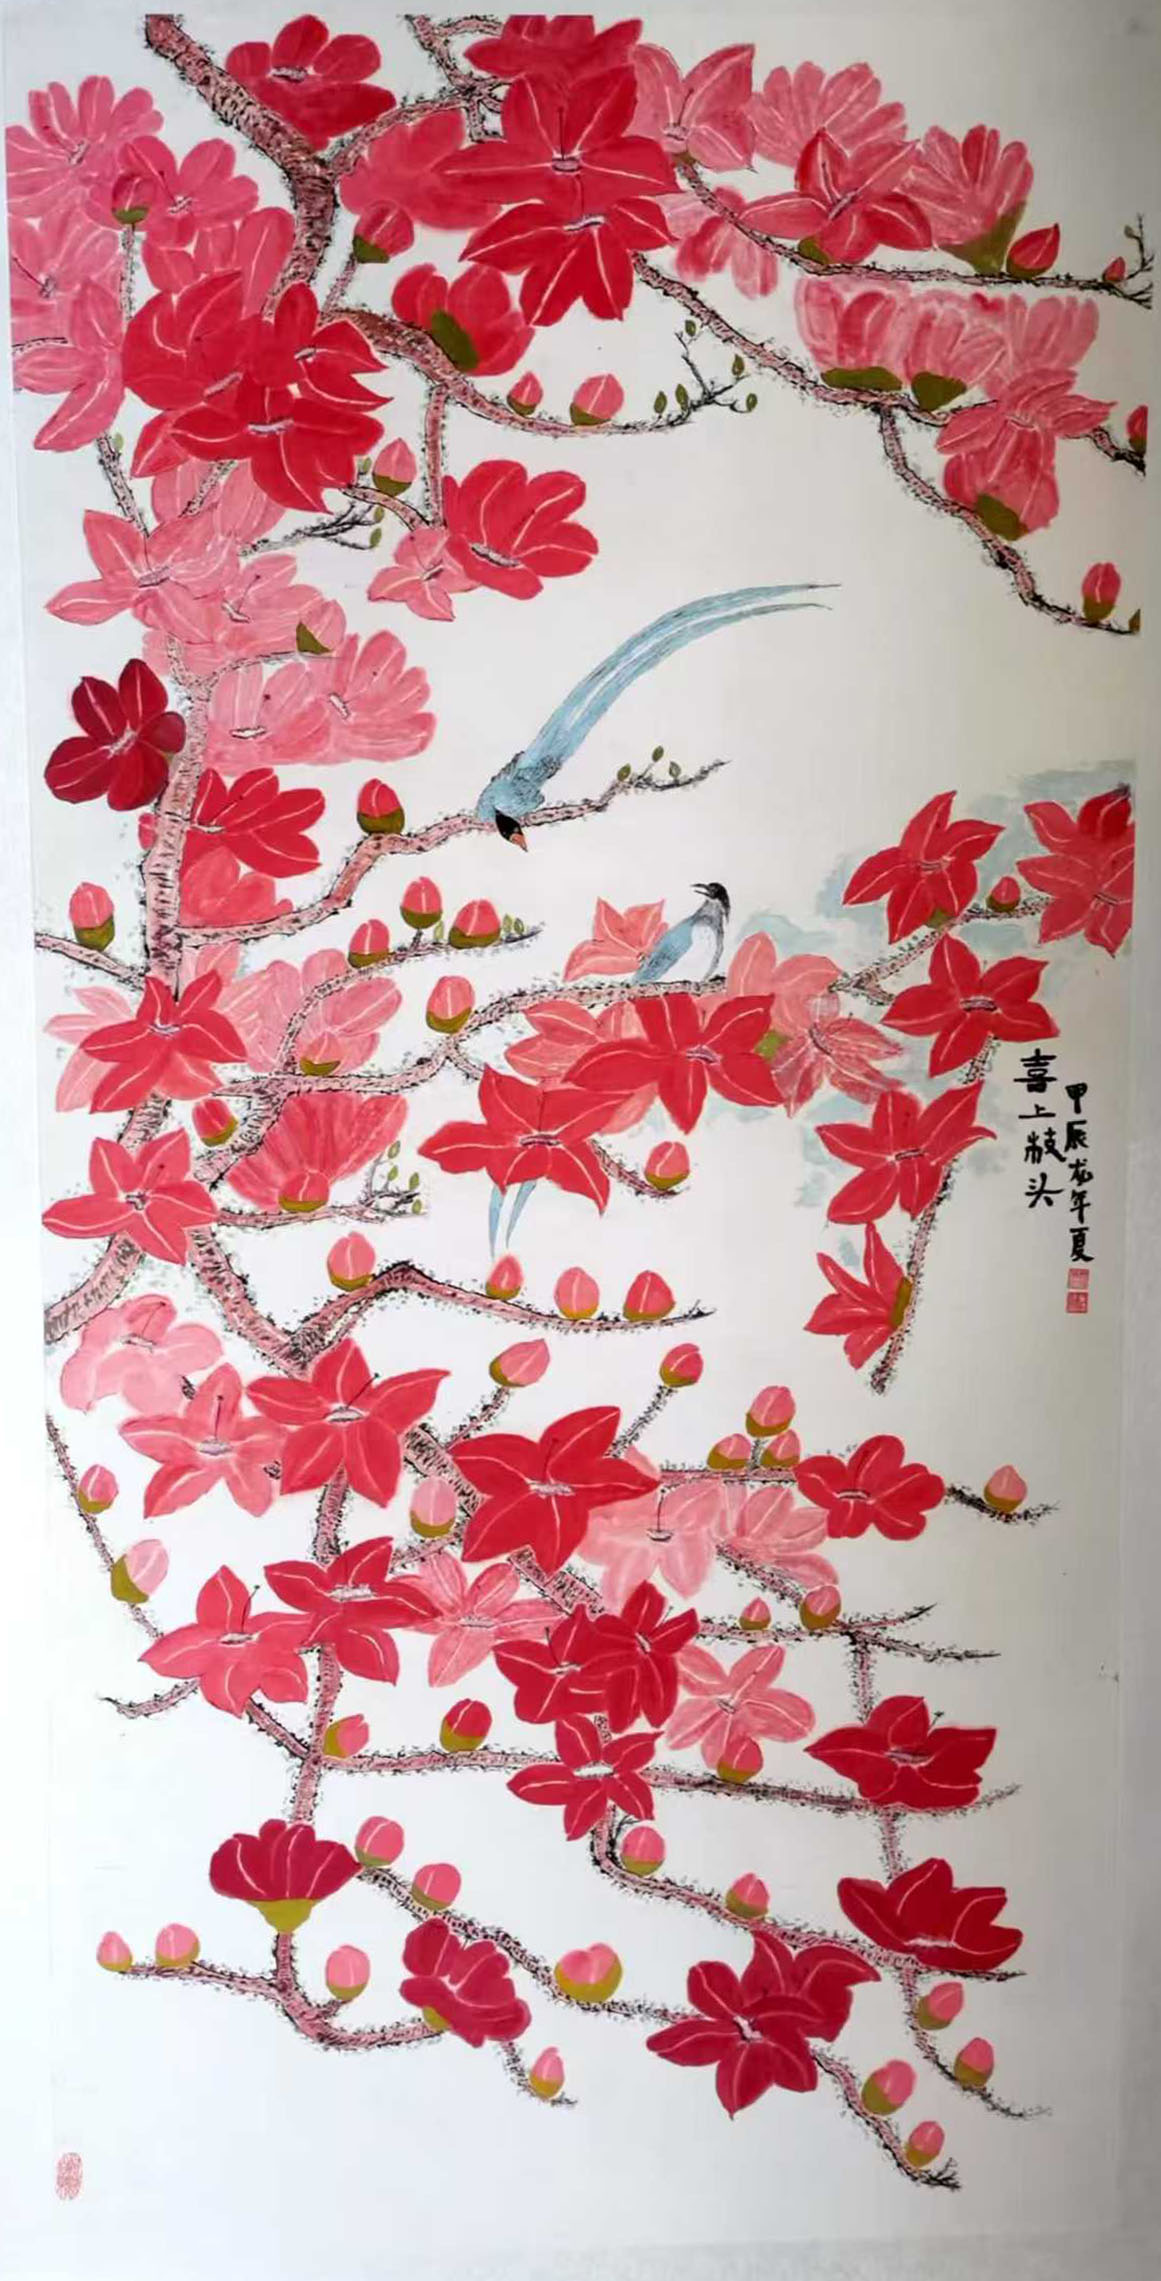 喜上枝头
甲辰龙年夏